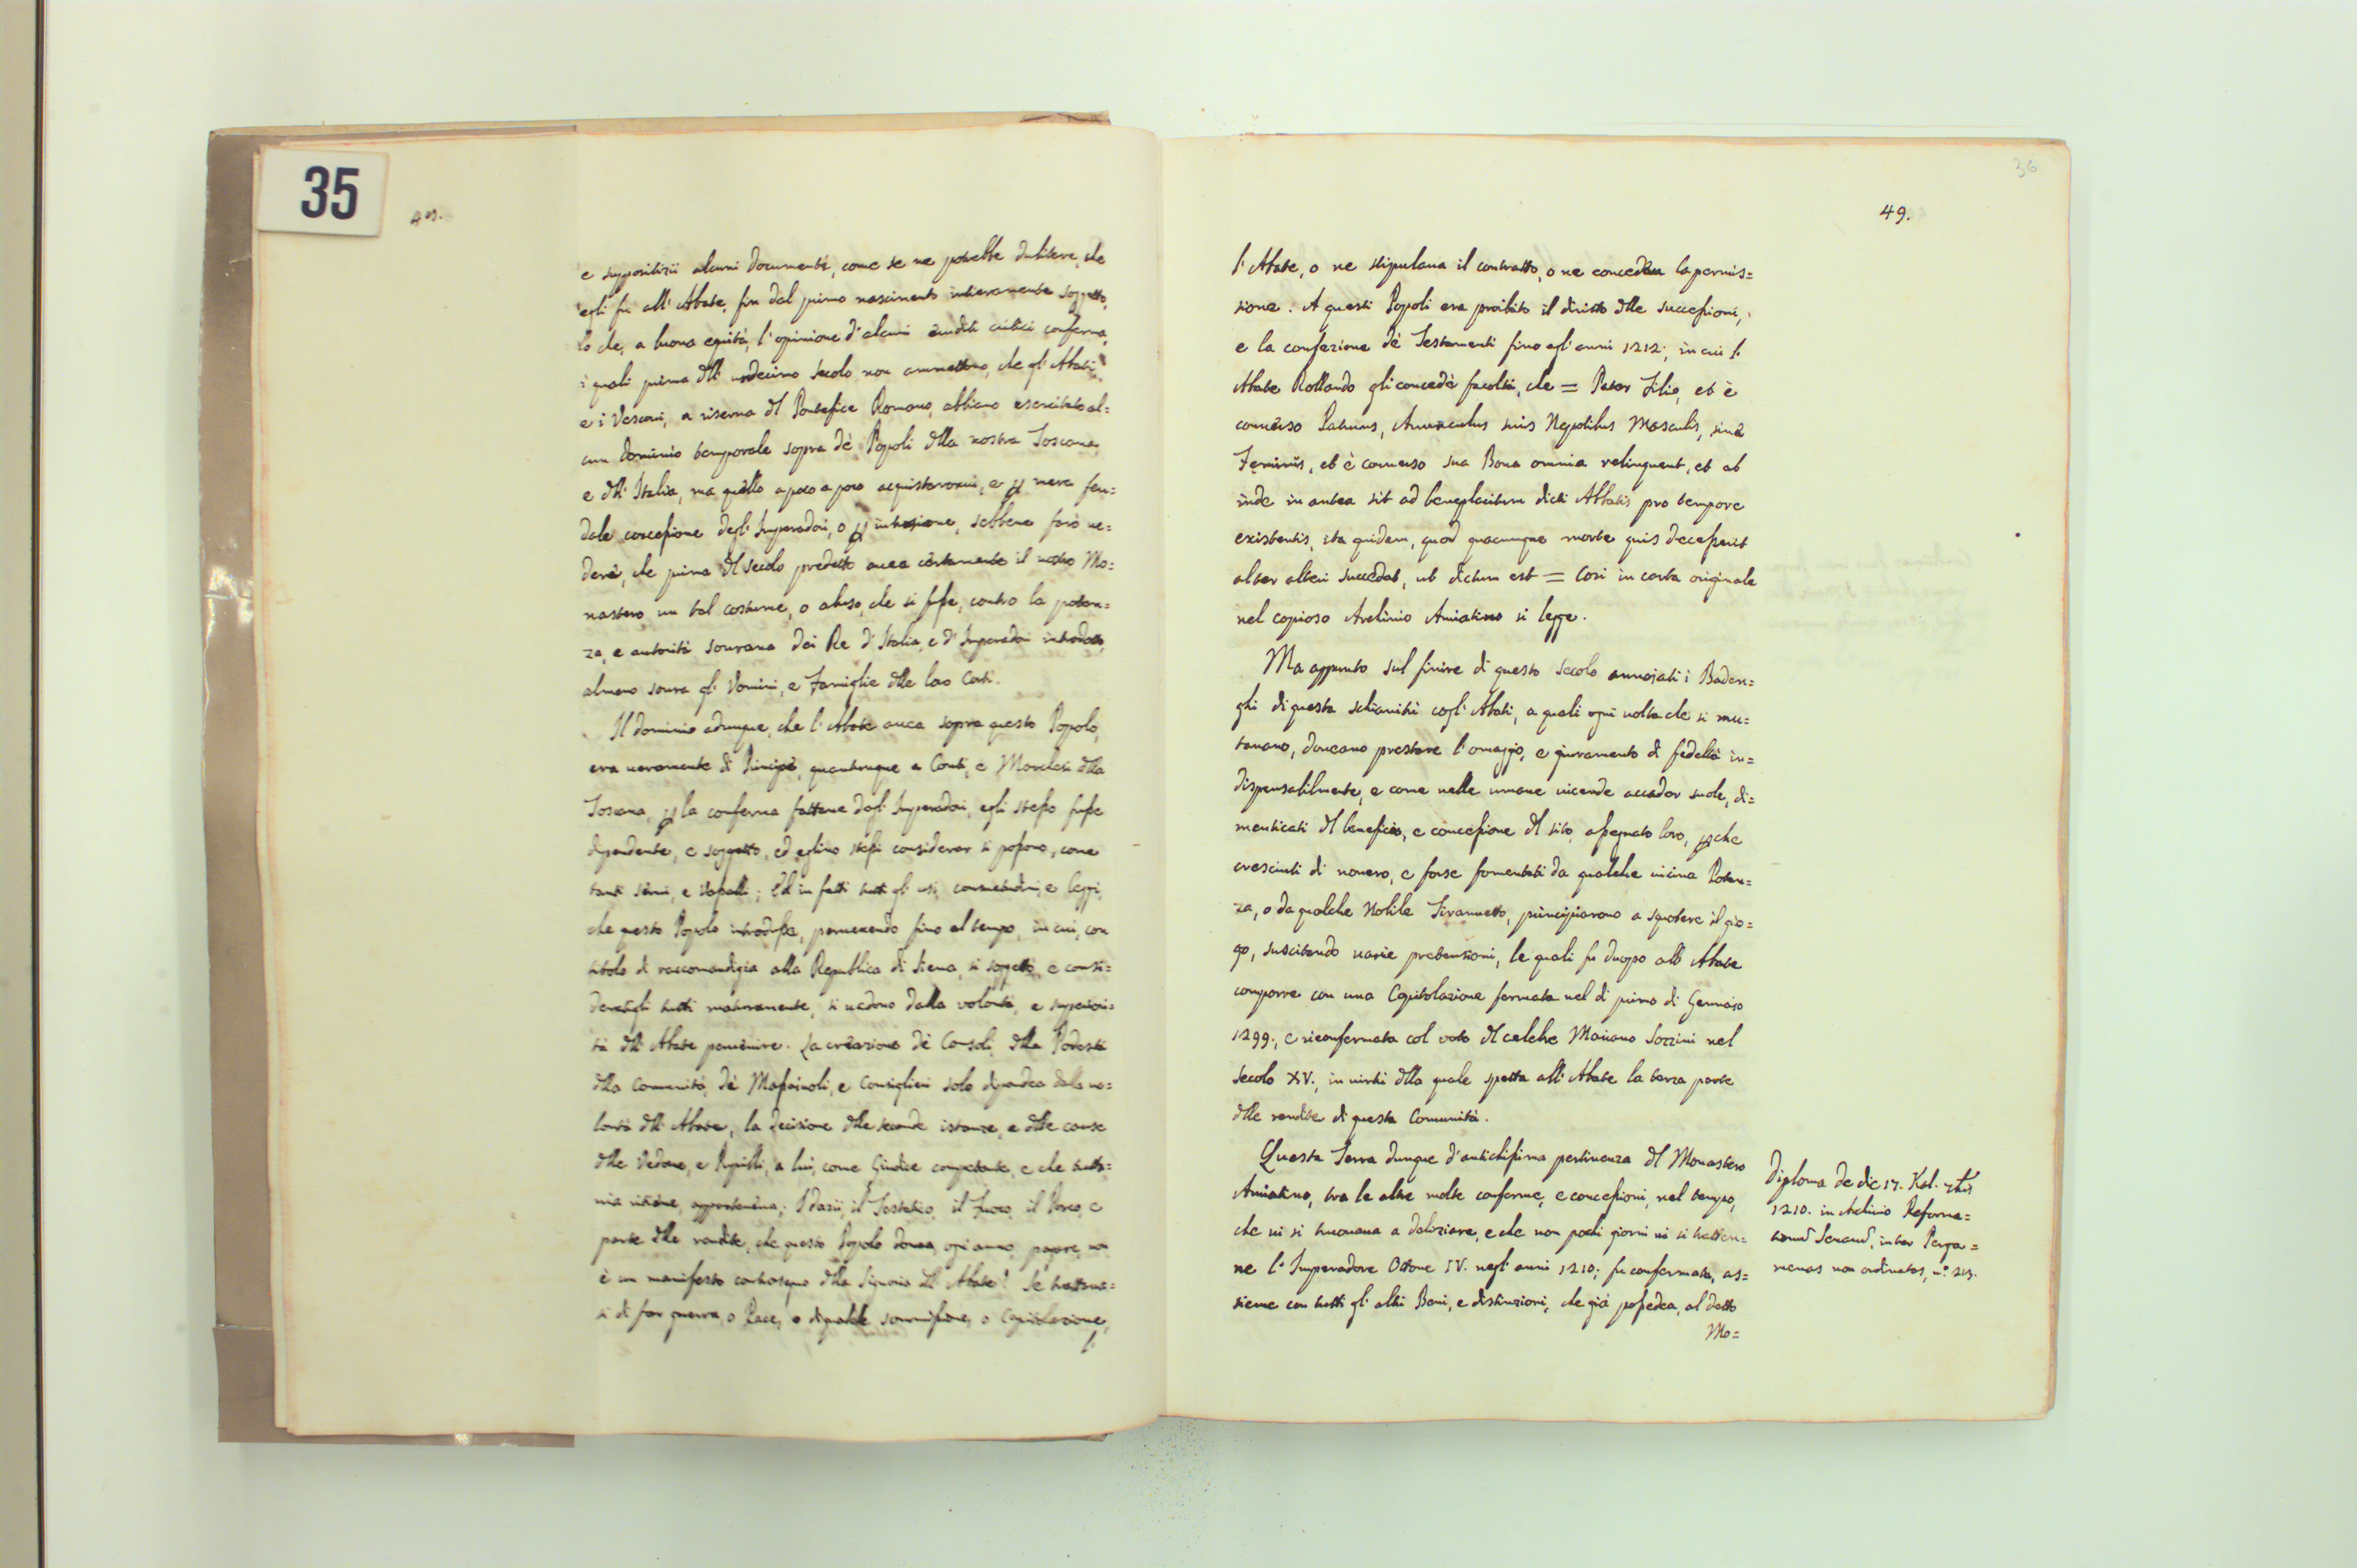 35
e suppositizii alcuni documenti, come se ne potrebbe dubitare, che
egli fu all' Abate, fin dal primo nascimento intieramente soggetto,
lo che, a buona equità, l' opinione d' alcuni eruditi critici conferma,
i quali prima dll' undecimo secolo non ammettono, che gl' Abati,
e i Vescovi, a riserva dl Pontefice Romano, abbiano esercitato al=
cun dominio temporale sopra de' Popoli dlla nostra Toscana,
e dll' Italia, ma quello a poco a poco acquistarono, e p mera feu=
dale concessione degl' Imperadori, o p intrusione, sebbene farò ve=
dere, che prima dl secolo predetto avea certamente il nostro Mo=
nastero un tal costume, o abuso, che si fosse, contro la poten=
za, e autorità sovrana dei Re d' Italia, e d' Imperadori introdotto,
almeno sovra gl' Uomini, e Famiglie dlle loro Corti.
Il dominio adunque, che l' Abate avea sopra questo Popolo,
era veramente di Principe, quantunque a Conti, e Marchesi dlla
Toscana, p la conferma fattane dagl' Imperadori, egli stesso fusse
dipendente, e soggetto, ed eglino stessi considerar si possono, come
tanti servi, e Vassalli; Ed in fatti tutti gl' usi, consuetudini, e leggi,
che questo Popolo introdusse, pervenendo fino al tempo, in cui, con
titolo di raccomandigia alla Republica di Siena, si soggettò, e consi=
derategli tutti maturamente, si vedono dalla volontà, e superiori=
tà dll' Abate pervenire. La creazione de' Consoli, dlla Podestà
dlla Comunità, de' Massaioli, e Consiglieri solo dipendea dalla vo=
lontà dll' Abate, la decisione dlle seconde istanze, e dlle cause
dlle Vedove, e Pupilli, a lui, come Giudice competente, e che tutta=
via ritiene, apparteneva; I Dazii, il Testatico, il Fuoco, il Porco, e
parte dlle rendite, che questo Popolo dovea ogni anno pagare, non
è un manifesto contrasegno dlla Signoria dll' Abate? Se trattava=
si di far guerra, o Pace, o di qualche sommissione, o Capitolazione,
l'
36
49.
l' Abate, o ne stipulava il contratto, o ne concedeva la permis=
sione. A questi Popoli era proibito il diritto dlle successioni,
e la confezione de' Testamenti fino agl' anni 1212; in cui l'
Abate Rollando gli concedè facoltà, che = Pater Filio, et è
converso Patruus, Avunculus suis Nepotibus Masculis, sive
Feminis, et è converso sua Bona omnia relinquent, et ab
inde in antea sit ad beneplacitum dicti Abbatis pro tempore
existentis, ita quidem, quod quacumque morte quis decesserit
alter alteri succedat, ut dictum est = Cosi in carta originale
nel copioso Archivio Amiatino si legge.
Ma appunto sul finire di questo secolo annojati i Baden=
ghi di questa schiavitù cogl' Abati, a quali ogni volta che si mu=
tavano, doveano prestare l' omaggio, e giuramento di fedeltà in=
dispensabilmente, e come nelle umane vicende accader suole, di=
menticati dl beneficio, e concessione dl sito, assegnato loro, pche
cresciuti di novero, e forse fomentati da qualche vicina Poten=
za, o da qualche Nobile Tirannetto, principiarono a squotere il gio=
go, suscitando varie pretensioni, le quali fu duopo all' Abate
comporre con una Capitolazione fermata nel di primo di Gennajo
1299., e riconfermata col voto dl celebre Mariano Sozzini nel
secolo XIV., in virtù dlla quale spetta all' Abate la terza parte
dlle rendite di questa Comunità.
Questa Terra dunque d' antichissima pertinenza dl Monastero
Amiatino, tra le altre molte conferme, e concessioni, nel tempo,
che vi si trovava a deliziare, e che non pochi giorni vi si tratten=
ne l' Imperadore Ottone IV. negl' anni 1210; fu confermata, as=
sieme con tutti gl' altri Beni, e distinzioni, che già possedea, al detto
Mo=
Diploma de die 17. Kal. 7bris
1210. in Archivio Reforma=
tionum Senarum, inter Perga=
menas non ordinatas, n.° 213.